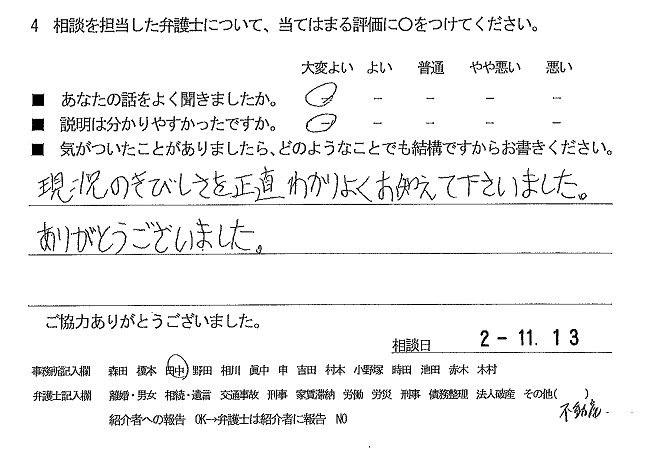 4 相談を担当した弁護士について、当てはまる評価に〇をつけてください。
大変よい よい 普通 やや悪い 悪い
■ あなたの話をよく聞きましたか。 － － － － －
■ 説明は分かりやすかったですか。 － － － － －
■ 気がついたことがありましたら、どのようなことでも結構ですからお書きください。
現況のきびしさを正直わかりよくお知えて下さいました。
ありがとうございました。
ご協力ありがとうございました。
相談日 2-11.13
事務所記入欄 森田 榎本 田中 野田 相川 眞中 申 吉田 村本 小野塚 時田 池田 赤木 木村
弁護士記入欄 離婚・男女 相続・遺言 交通事故 刑事 家賃滞納 労働 労災 刑事 債務整理 法人破産 その他( )
不動産
紹介者への報告 OK→弁護士は紹介者に報告 NO